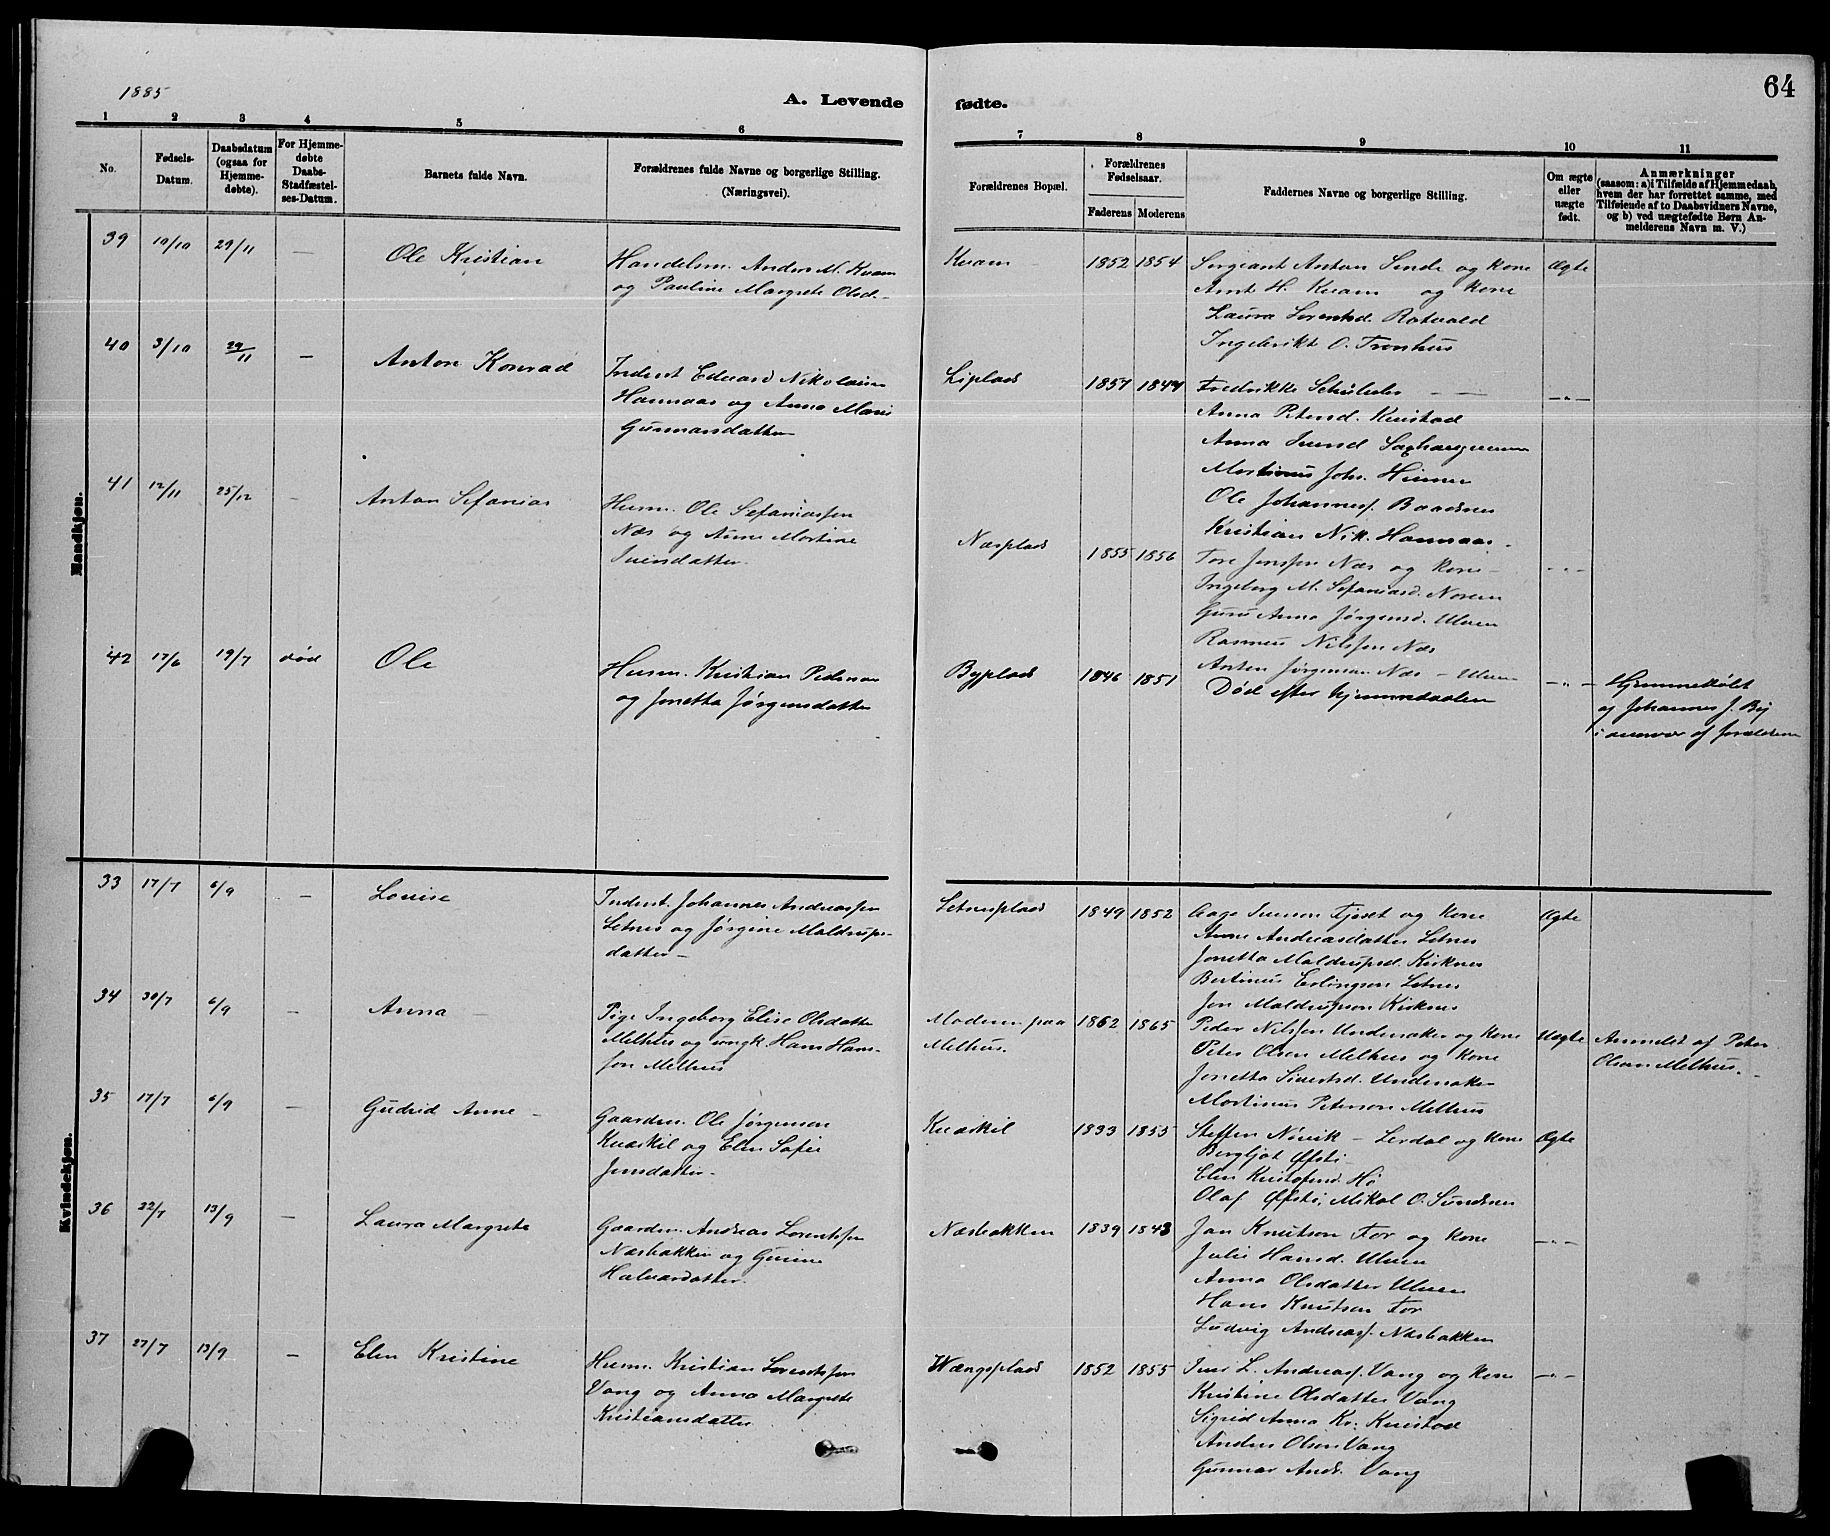 1885
64
A. Levende fødte.
1 2 3 4 5 6 7 8 9 10 11
No.
Fødsels-
Datum.
Daabsdatum
(ogsaa for
Hjemme-
døbte).
For Hjemme-
døbte
Daabs-
Stadfæstel-
ses-Datum.
Barnets fulde Navn.
Forældrenes fulde Navne og borgerlige Stilling.
(Næringsvei).
Forældrenes Bopæl.
Forældrenes
Fødselsaar.
Faderens Moderens
Faddernes Navne og borgerlige Stilling.
Om ægte
eller
uægte
født.
Anmærkninger
(saasom: a) i Tilfælde af Hjemmedaab,
hvem der har forrettet samme, med
Tilføiende af to Daabsvidners Navne,
og b) ved uægtefødte Børn An-
melderens Navn m. V.)
Mandkjøn.
39 10/10 29/11 — Ole Kristian
Handelsm. Anders M. Kvam
og Pauline Margrete Olsd.
Kvam 1852 1854
Sergeant Anton Sende og Kone
Arnt H. Kvam og Kone
Laura Lorentsd. Rotvold
Ingebrikt O. Tronhus
Ægte
40 3/10 29/11 — Anton Konrad
Inderst Edvard Nikolaisen
Hammar og Anna Marie
Gunnarsdatter
Liplads 1857 1847
Fredrikke
Anna Petersd. Kvistad
Anna
Martinus Joh.
Ole Johannesf.
Kristian Nik.
—"—
41 12/11 25/12 — Anton Sefanias
Husm. Ole Sefaniassen
Næs og Anne Martine
Iversdatter
Næsplads 1855 1856
Tore Jensen Næs og Kone
Ingeborg M. Sefaniasd. Norem
Guru Anna Jørgensd. Ulven
Rasmus Nilssen Næs
Anton Jørgensen Næs — Ulven
—"—
42 17/6 19/7 død Ole
Husm. Kristian Pedersen
og Jonetta Jørgensdatter
Byplads 1846 1851
Død efter hjemmedaaben
—"—
Hjemmedøbt
af Johannes J. By
i nærvær af forældrene
Kvindekjøn.
33 17/7 6/9 — Louise
Inderst. Johannes Andreassen
Letnes og Jørgine Maldrups-
datter —
Letnesplads 1849 1852
Aage Iversen Fjeset og Kone
Anne Andreasdatter Letnes
Jonetta Maldrupsd. Kirknes
Bertinus Erlingsen Letnes
Jon Maldrupsen Kirknes
Ægte
34 30/7 6/9 — Anna —
Pige Ingeborg Elise Olsdatter
Melhus og ungk. Hans Hans-
sen Melhus
Moderen paa
Melhus.
1862 1865
Peder Nilssen Undersaker og Kone
Peter Olsen Melhus og Kone
Jonetta Sivertsd. Undersaker
Martinus Petersen Melhus
Uægte
Anmeldt af Peter
Olsen Melhus.
35 17/7 6/9 — Gudrid Anne —
Gaardm. Ole Jørgensen
Kvæskil og Elen Sofie
Jensdatter —
Kvæskil 1833 1855
Steffen Nøvik — Lerdal og Kone
Bergljot Øfsti
Elen Kristofersd. Hø
Olaf Øfsti, Mikal O. Sundsnes
Ægte
36 22/7 13/9 — Laura Margrete
Gaardm. Andreas Lorentssen
Næsbakken og Gurine
Halvardatter.
Næsbakken 1839 1843
Jon Knutson For og Kone
Julie Hansd. Ulven
Anna Olsdatter Ulven
Hans Knutson For
Ludvig Andreasf. Næsbakken
—"—
37 27/7 13/9 — Elen Kristine
Husm. Kristian Lorentssen
Vang og Anna Margrete
Kristiansdatter
Wangsplads 1852 1855
Iver L. Andreasf. Vang og Kone
Kristine Olsdatter Vang
Sigrid Anna Kr. Kvistad
Anders Olsen Vang
Gunnar Andr. Vang
—"—